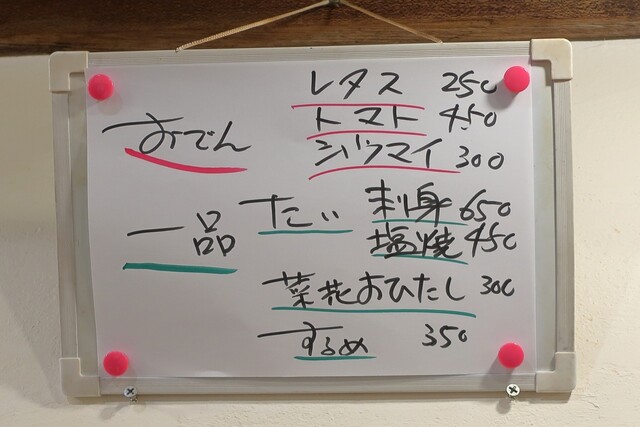 おでん
レタス 250
トマト 450
シウマイ 300
一品
たい 刺身 650
塩焼 450
菜花おひたし 300
するめ 350